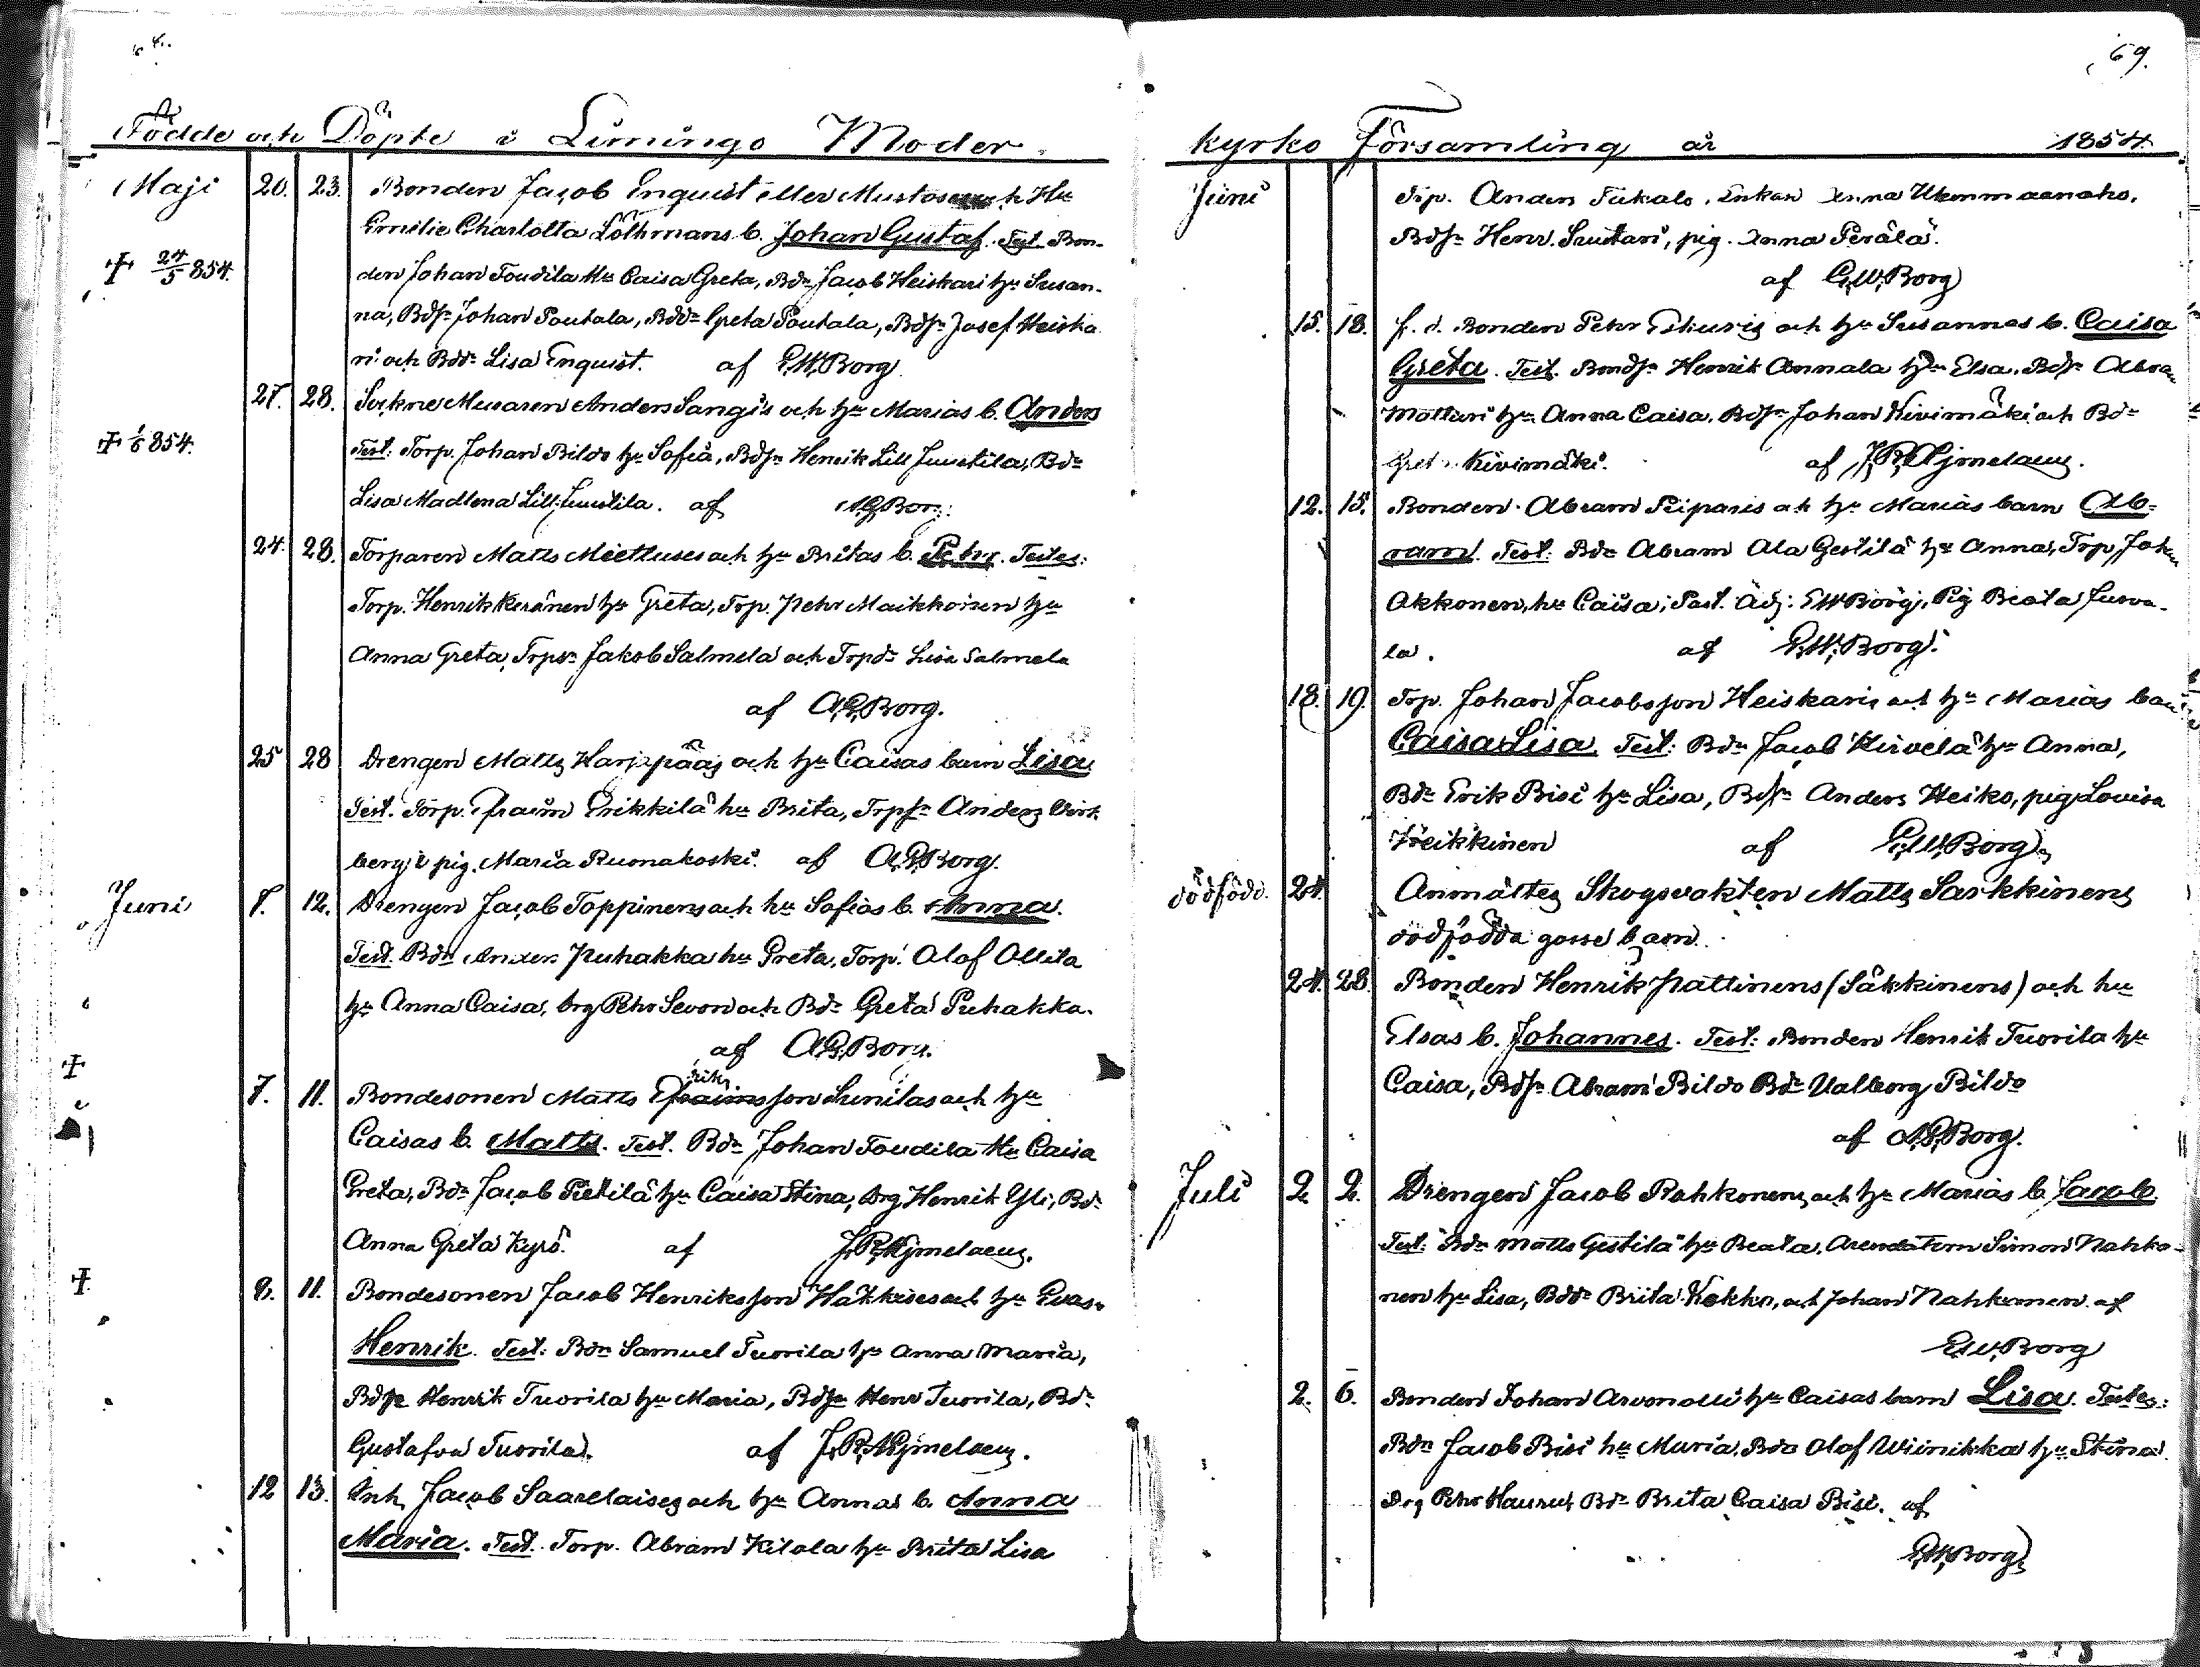 Födde och Döpte i Limingo Moder
Maji 20. 23. Bonden Jacob Enquist eller Mustos och Hu
Emilie Charlotta Löthmans b. Johan Gustaf. Test. Bon-
✝ 24/5 854. den Johan Toudila Hu Caisa Greta, Bdn Jacob Heiskari hu Susan-
na, Bdsn Johan Pautala, Bddr Greta Pautala, Bdsn Josef Heiska
ri och Bddr Lisa Enquist. af E.W.Borg
27. 28. Sockne Muraren Anders Sangis och hu Marias b. Anders
✝ 1/6 854. Test: Torp. Johan Bildo hu Sofia, Bdsn Henrik Lill Juustila, Bdr
Lisa Madlena Lill Juustila. af A.G.Borg.
24. 28. Torparen Matts Miettuses och hu Britas b. Petter. Testes:
Torp. Henrik Keränen hu Greta, Trp. Pehr Maikkoinen hu
Anna Greta, Trpsn Jakob Salmela och Trpdr Lisa Salmela
af A.G.Borg.
25 28 Drengen Matts Harjupääs och hu Caisas barn Lisa
Test. Torp. Efraim Erikkilä hu Brita, Trpsn Anders
berg & pig. Maria Ruonakoski. af A.G.Borg.
Juni 7. 12. Drengen Jacob Toppinens och hu Sofias b. Anna.
Test. Bdn Anders Puhakka hu Greta, Torp. Olof Ollila
hu Anna Caisa, drg Pehr Sevon och Bdr Greta Puhakka.
af A.G.Borg.
✝ rik
7. 11. Bondesonen Matts Efraimsson Sunilas och hu
Caisas b. Matts. Test. Bdn Johan Toudila Hu Caisa
Greta, Bdn Jacob Pietilä hu Caisa Stina, drg Henrik Yli, Bdr
Anna Greta Kyrö. af J.R.Hjmelaeus.
✝ 8. 11. Bondesonen Jacob Henriksson Hakkises och hu Evas
Henrik. Test: Bdn Samuel Tuorila hu Anna Maria,
Bdsn Henrik Tuorila hu Maria, Bdsn Henr Tuorila, Bdr
Gustafva Tuorila. af J.R.Hjmelaeus.
12 13. Inh. Jacob Saarelaises och hu Annas b. Anna
Maria. Test. Torp. Abram Kilola hu Brita Lisa
69.
kyrko Församling år 1854.
Juni Trp. Anders Tikala, Enkan Anna Ukonmaanaho,
Bdsn Henr. Suutari, pig. Anna Perälä.
af E.W.Borg
15. 18. f. d. Bonden Pehr Eskuris och hu Susannas b. Caisa
Greta. Test. Bondsn Henrik Annala hu Elsa, Bdsn Abra
Mottari hu Anna Caisa, Bdsn Johan Kivimäki och Bdr
Greta Kivimäki. af J.R.Hjmelaeus.
12. 15. Bonden Abram Piiparis och hu Marias barn Ab-
ram. Test: Bdn Abram Ala Gestilä hu Anna, Trp, Joh
Akkonen, hu Caisa, Past. Adj: E.W.Borg, Pig Beata Jurva-
la. af E.W.Borg.
18. 19. Trp. Johan Jacobsson Heiskaris och hu Marias bar
Caisa Lisa. Test: Bdn Jacob Kirvelä hu Anna,
Bdn Erik Bisi hu Lisa, Bdsn Anders Heiko, pig Lovisa
Heikkinen af E.W.Borg
dödfödd. 24. Anmältes Skogsvakten Matts Sarkkinens
dödfödda gosse barn.
24. 28. Bonden Henrik Pattinens (Säkkinens) och hu
Elsas b. Johannes. Test: Bonden Henrik Tuorila hu
Caisa, Bdsn Abram Bildo Bdr Valborg Bildo
af A.G.Borg.
Juli 2. 2. Drengen Jacob Rahkonens och hu Marias b. Jacob.
Test: Bdn Matts Gestilä hu Beata, Arendatorn Simon Nahko-
nen hu Lisa, Bddr Brita Kokko, och Johan Nahkonen. af
E.W.Borg
2. 6. Bonden Johan Arvonolli hu Caisas barn Lisa. Testes:
Bdn Jacob Bisi hu Maria, Bdn Olof Wiinikka hu Stina.
Drg Pehr Haurus, Bdr Brita Caisa Bisi. af
E.W.Borg